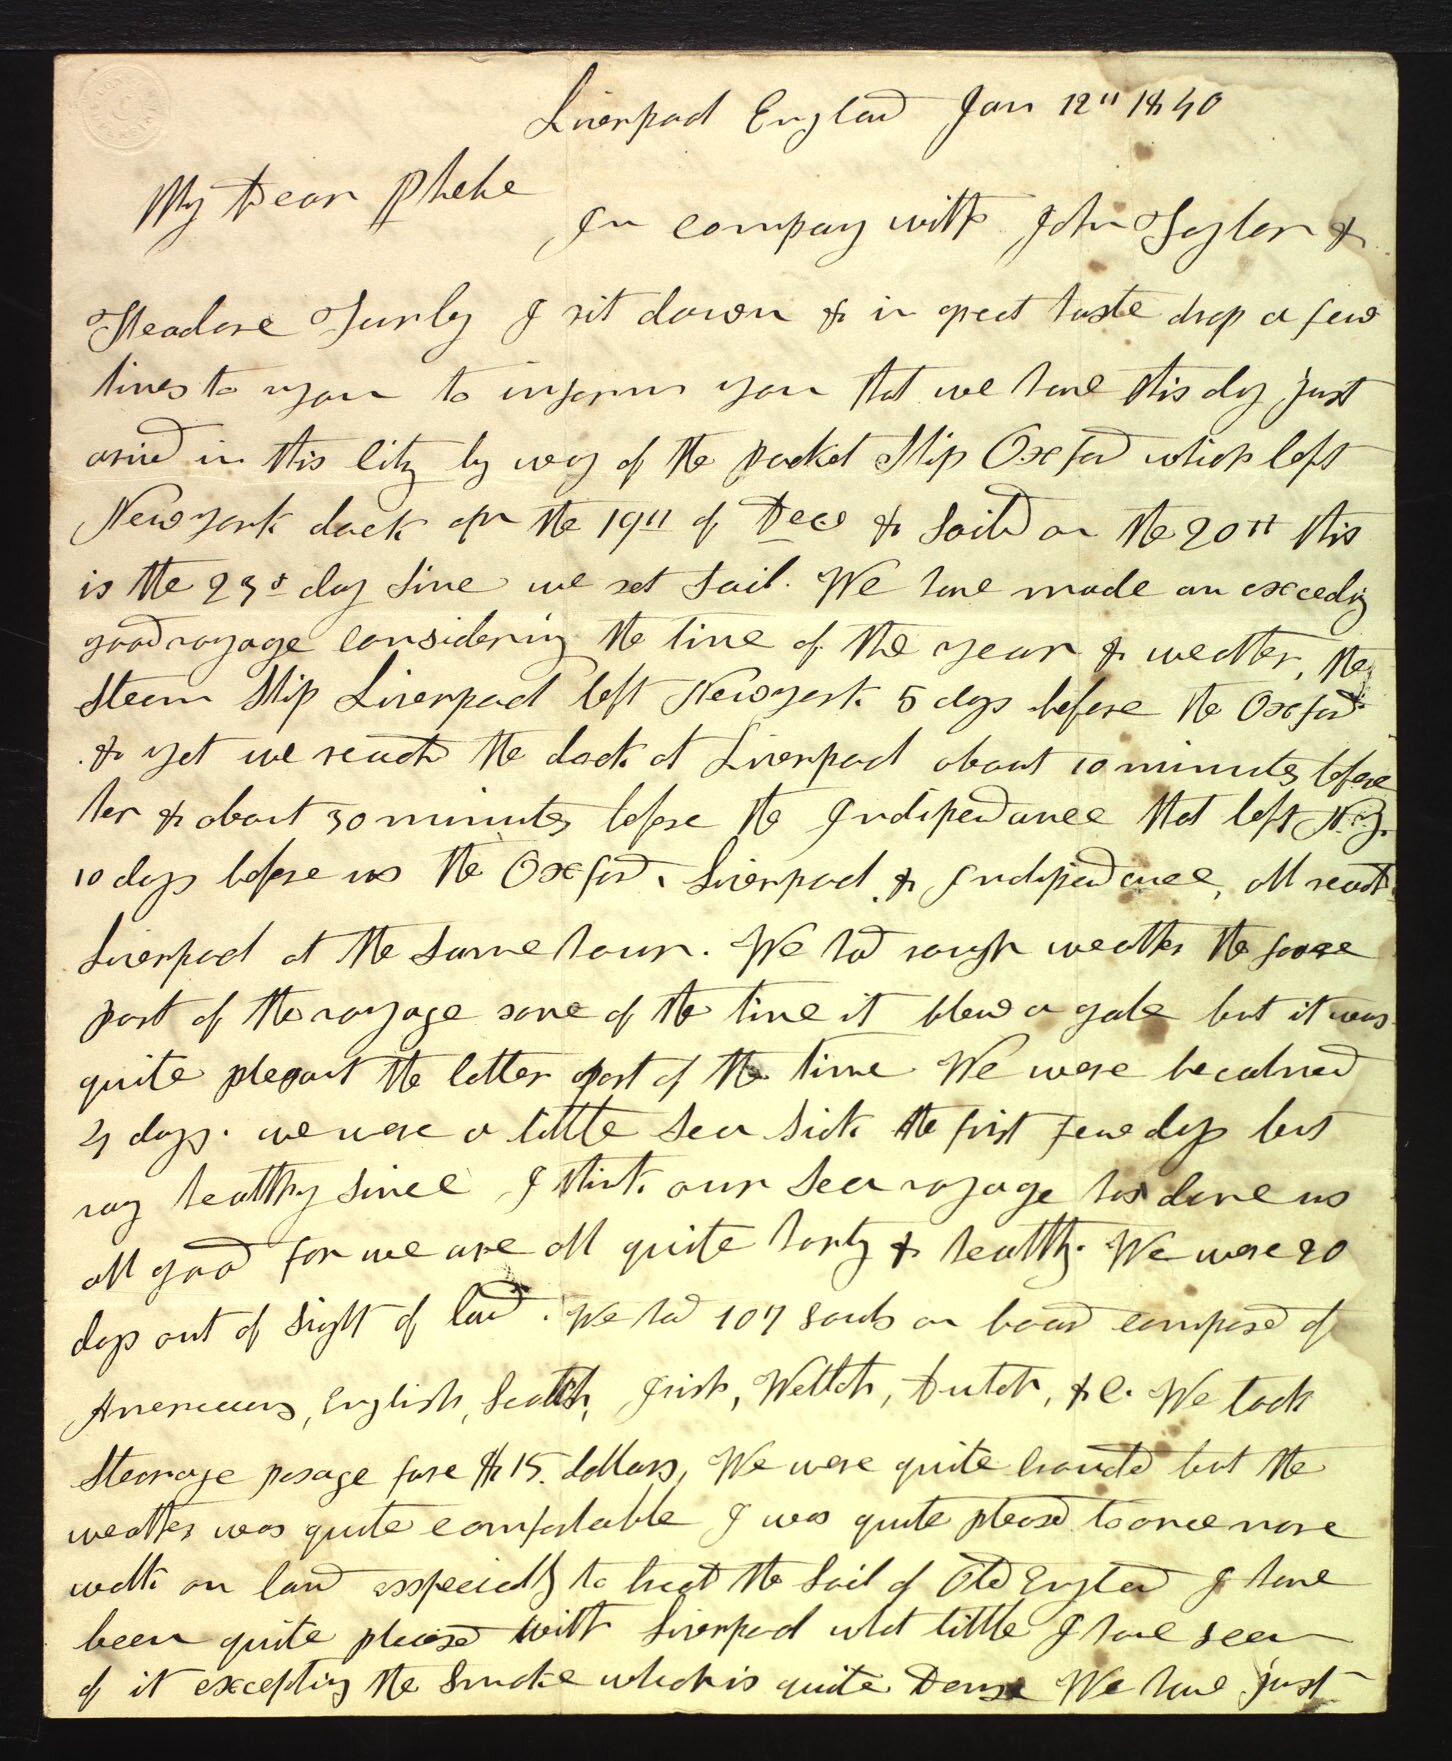 Liverpool England Jan 12th 1840
My Dear Phebe
In company with John Taylor &
Theodore Turley I sit down & in great haste drop a few
lines to you to inform you that we have this day just
arived in this City by way of the packet Ship Oxford which left
New york dock on the 19th of Dec & Saild on the 20th this
is the 23d day sine we set Sail. We have made an exceeding
good voyage considering the time of the year & weather, the
Steam Ship Liverpool left New york 5 days before the Oxford
& yet we reachd the dock at Liverpool about 10 minutes before
her & about 30 minutes before the Independance that left N.Y.
10 days before us the Oxford, Liverpool & Indipendance, all reachd
Liverpool at the Same hour. We had rough weather the fore
part of the voyage some of the time it blew a gale but it was
quite plesant the latter part of the time We were becalmed
4 days. we were a little Sea Sick the first few days but
vary healthy Since I think our Sea voyage has done us
all good for we are all quite harty & healthy. We were 20
days out of Sight of land. We had 107 Souls on board composed of
Americans, English, Scotch, Irish, Weltch, Dutch, &c. We took
Stearage pasage fare $15. dollars, We were quite croudd but the
weather was quite comfortable I was quite pleased to once more
walk on land especially to tread the Soil of Old England I have
been quite pleased with Liverpool what little I have seen
of it excepting the Smoke which is quite Dense We have just